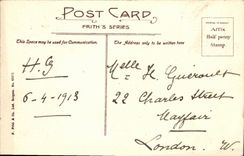 POST CARD
FRITH'S SERIES
This Space may be used for Communication.
The address only to be written here
Affix
Half penny
Stamp.
H.G
6-4-1913
Melle H. Guéroult
22 Charles Street
Mayfair
London. W.